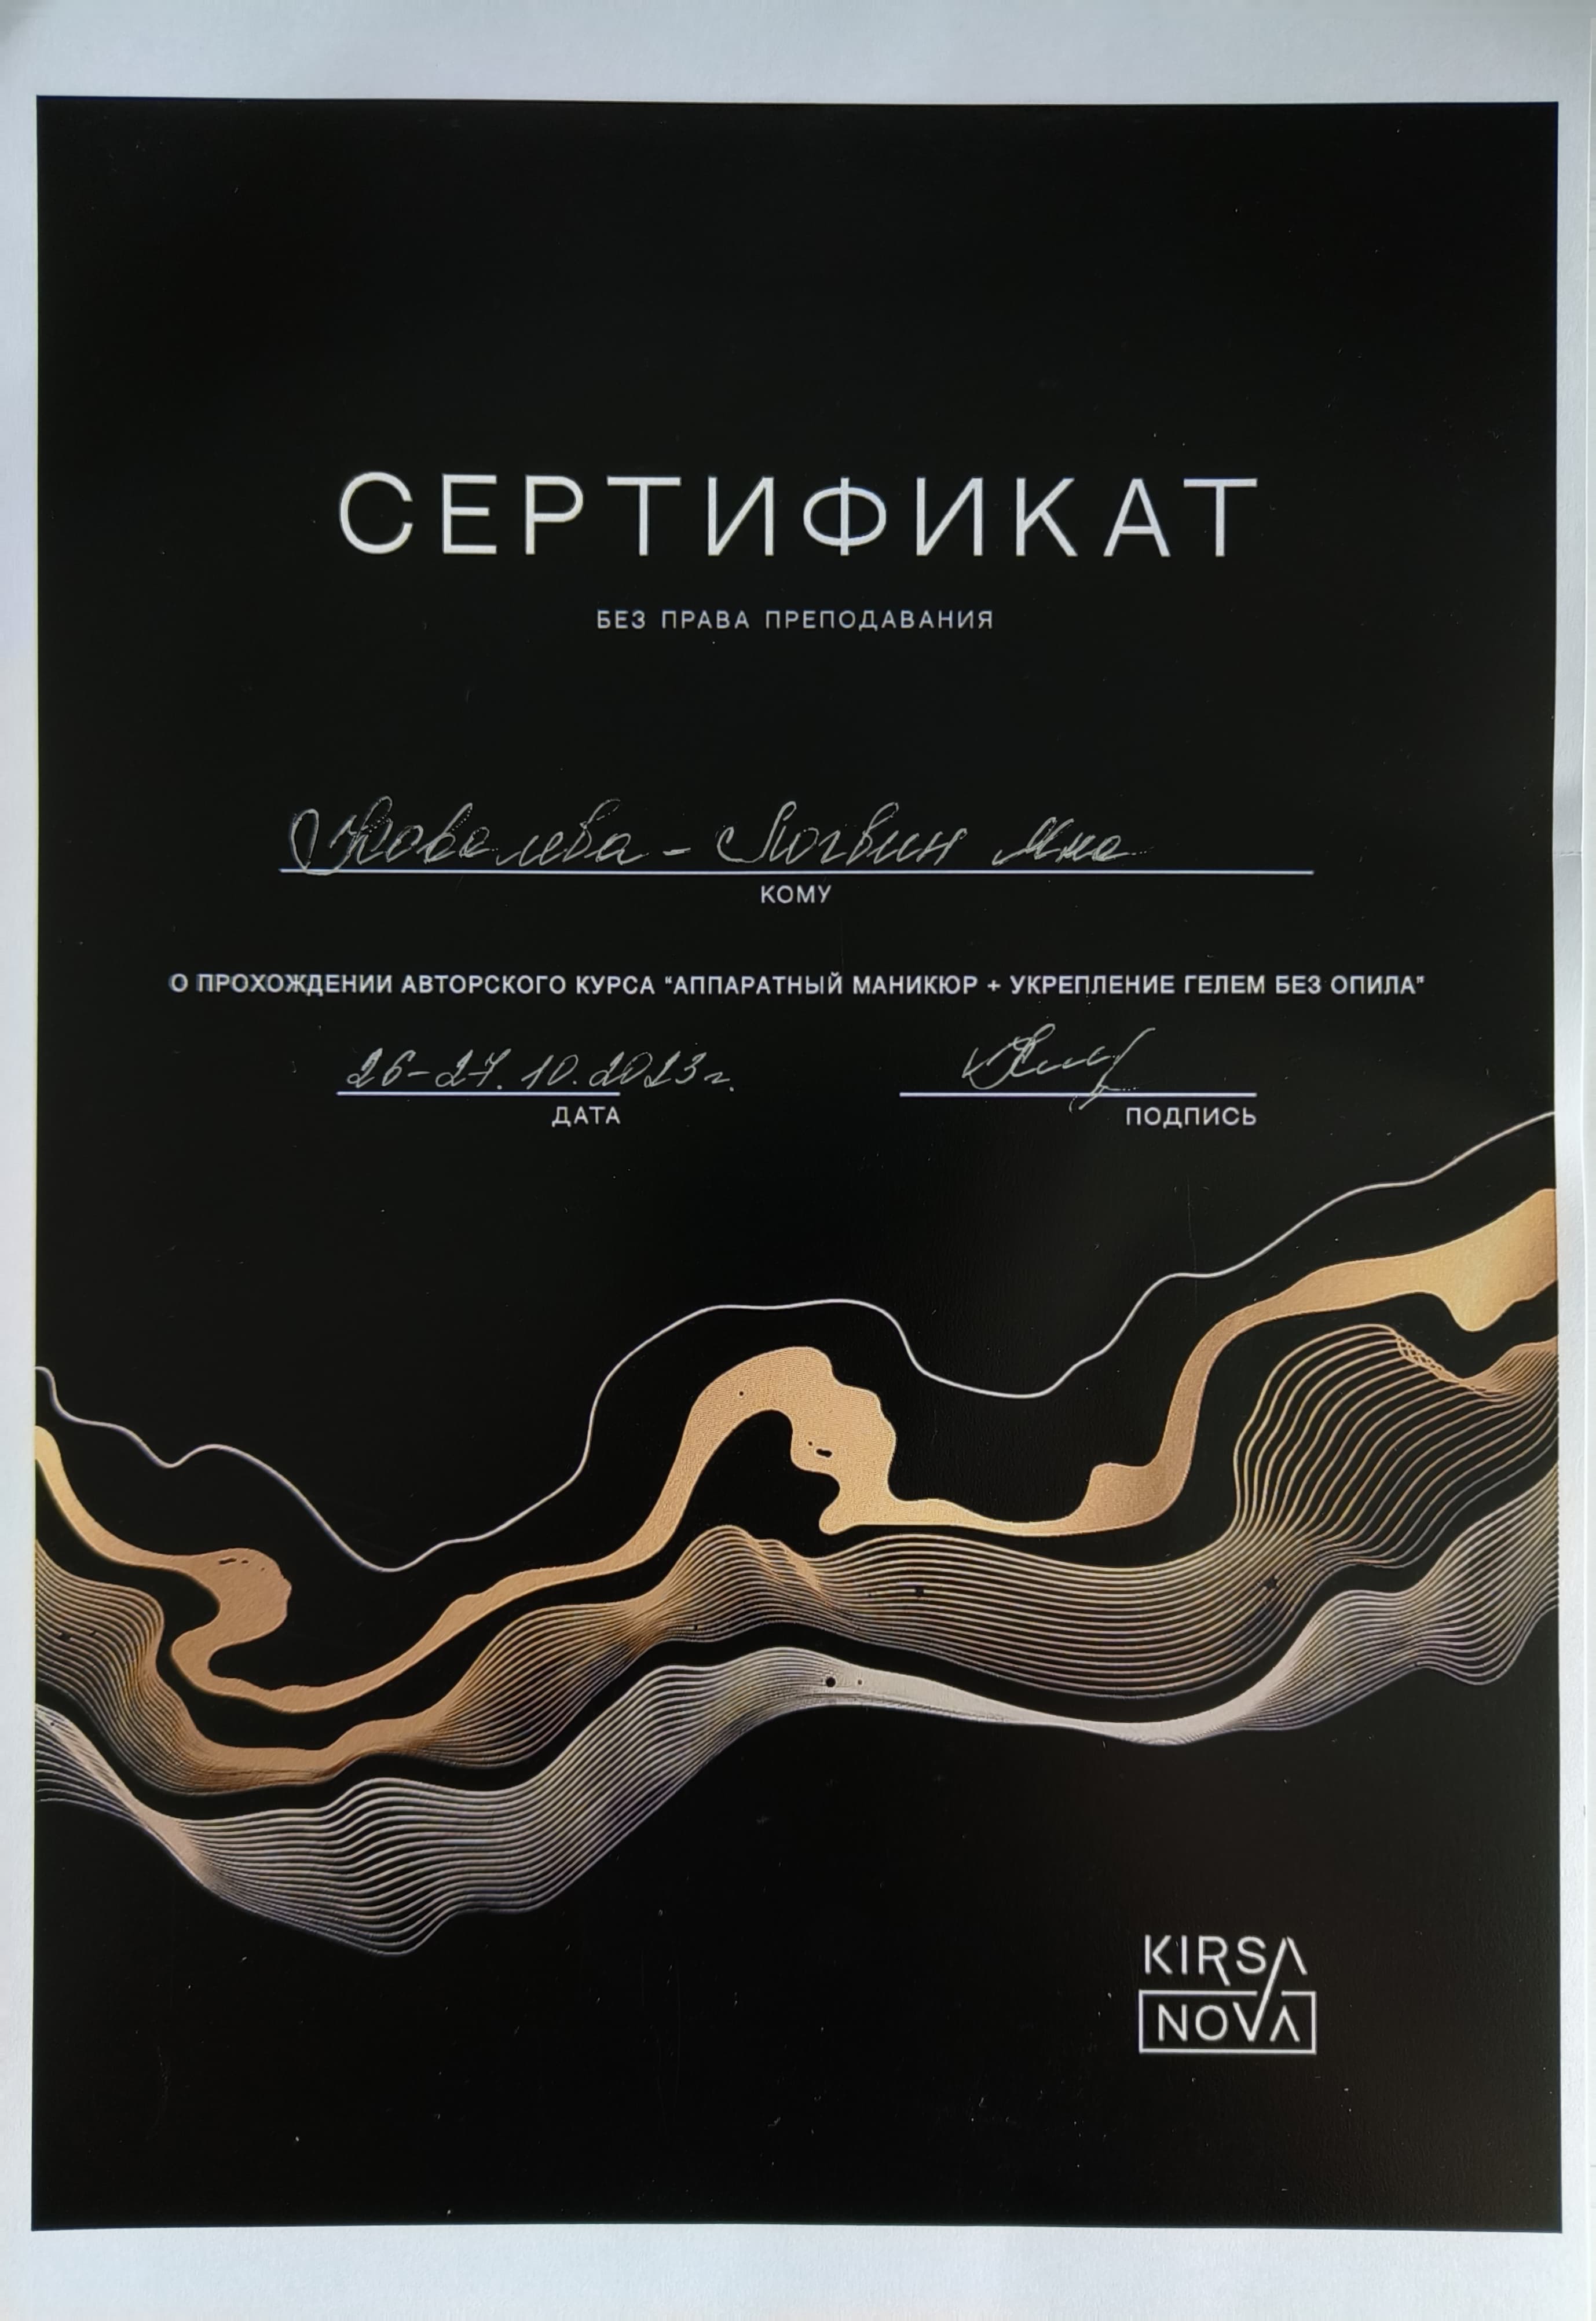 СЕРТИФИКАТ
БЕЗ ПРАВА ПРЕПОДАВАНИЯ
Ковалева - Логвин Яна
КОМУ
О ПРОХОЖДЕНИИ АВТОРСКОГО КУРСА "АППАРАТНЫЙ МАНИКЮР + УКРЕПЛЕНИЕ ГЕЛЕМ БЕЗ ОПИЛА"
26-27.10.2023г.
ДАТА
ПОДПИСЬ
KIRSA
NOVA